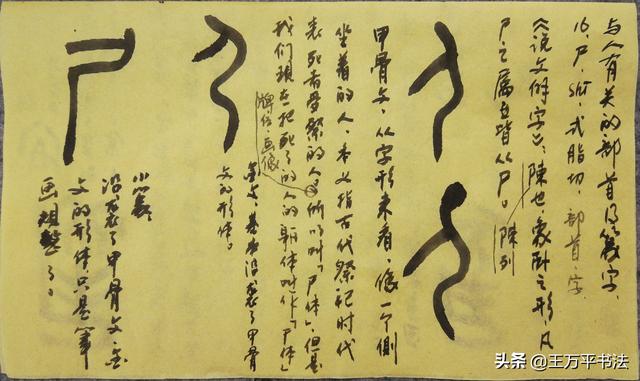 与人有关的部首及篆字,
16,尸,shī,式脂切,部首字.
《说文解字》:陳也,象卧之形,凡
尸之属皆从尸。陳列
甲骨文,从字形来看,像一个侧
坐着的人,本义指古代祭祀时代
表死者受祭的人,
牌位·画像
我们现在把死了的人的躯体叫作「尸体」
金文,基本沿袭了甲骨
文的形体。
小篆
沿袭了甲骨文、金
文的形体,只是笔
画规整了。
尸
头条 @王万平书法